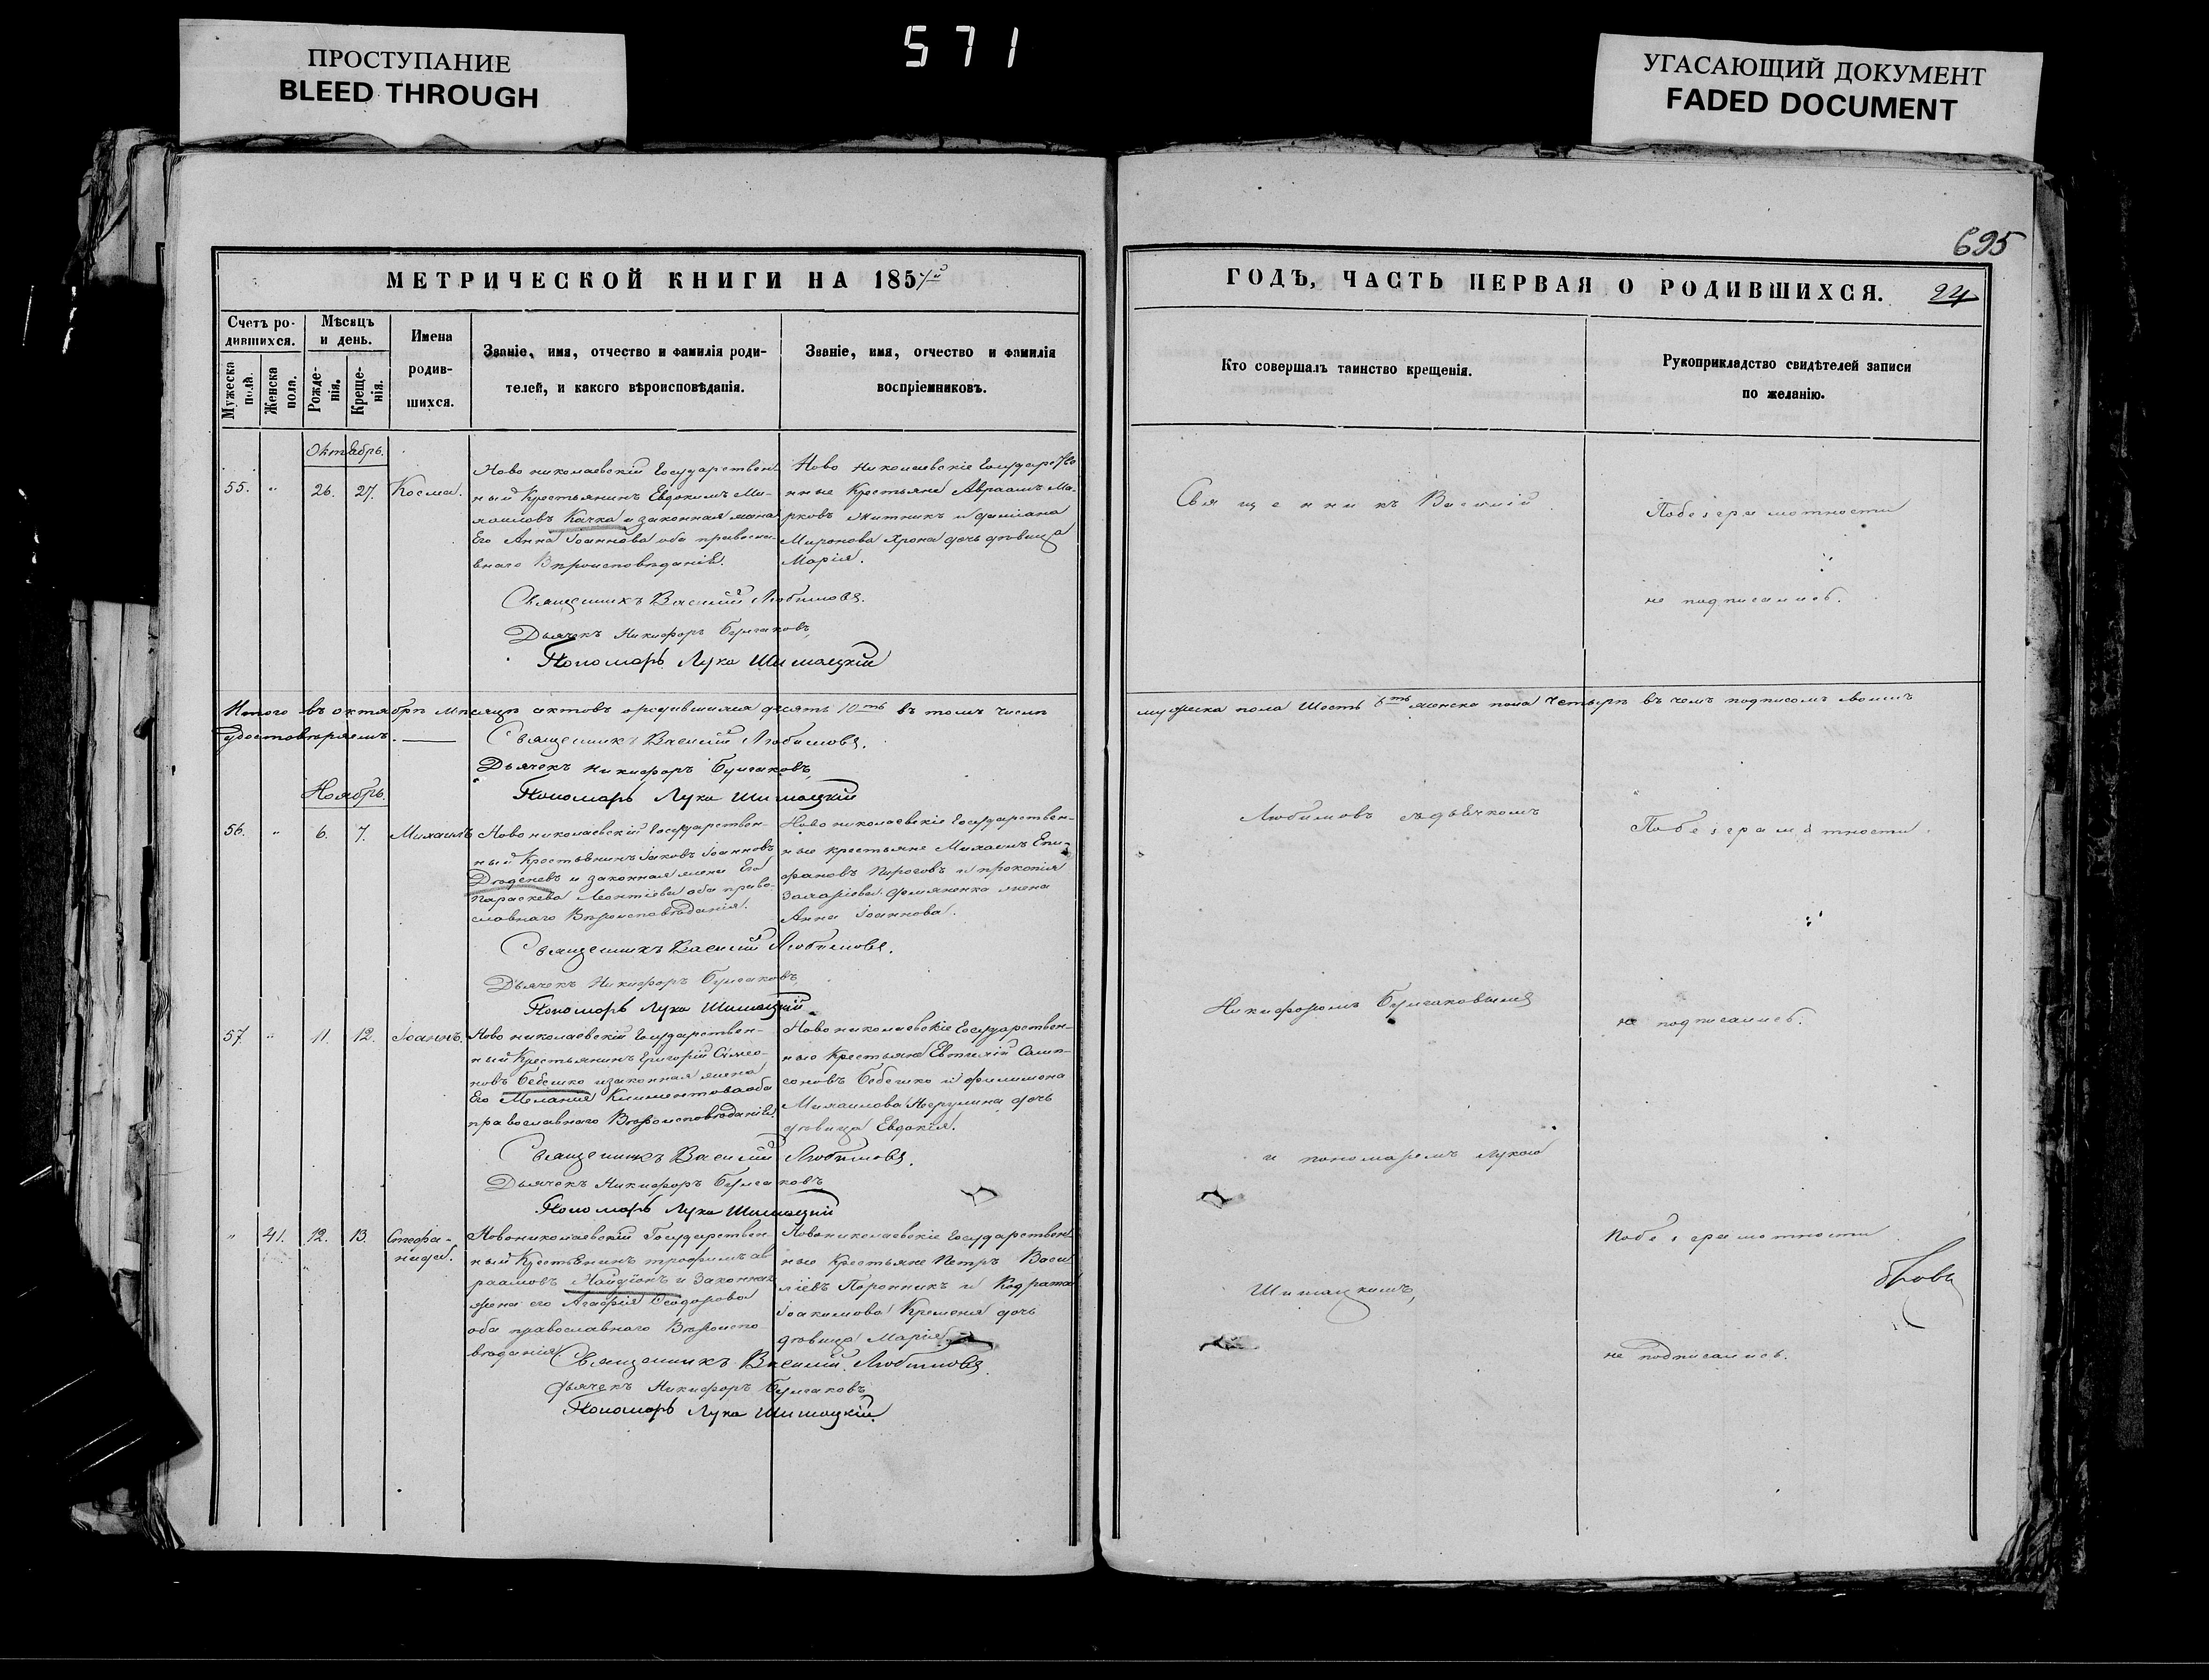 571
ПРОСТУПАНИЕ
BLEED THROUGH
УГАСАЮЩИЙ ДОКУМЕНТ
FADED DOCUMENT
695
МЕТРИЧЕСКОЙ КНИГИ НА 185
Счетъ ро-
дившихся.
Мужеска
пола.
Женска
пола.
Мѣсяцъ
и день.
Рожде-
нія.
Креще-
нія.
Имена
родив-
шихся.
Званіе, имя, отчество и фамилія роди-
телей, и какого вѣроисповѣданія.
Званіе, имя, отчество и фамилія
воспріемниковъ.
Октябрь.
55. " 26. 27. Косма.
Ново николаевскій Государствен-
ный Крестьянинъ Евдокимъ Ми-
хаиловъ Качка и законная жена
Его Анна Іоаннова оба православ-
внаго Вѣроисповѣданія.
Ново Николаевскіе Государстве
нные Крестьяне Авраамъ Ма-
рковъ Житникъ и
Миронова дочь дѣвица
Марія.
Священникъ Василій Любимовъ.
Дьячекъ Никифоръ Булгаковъ,
Пономарь Лука Шимацкій
Итого въ октябрѣ мѣсяцѣ актовъ о родившихся десять 10ть въ томъ числѣ
удостовѣряемъ.
Священникъ Василій Любимовъ.
Дьячекъ Никифоръ Булгаковъ,
Пономарь Лука Шимацкій
Ноябрь.
56. " 6. 7. Михаилъ
Ново николаевскій Государствен-
ный Крестьянинъ Іаковъ Іоанновъ
Дюденевъ и законная жена Его
Параскева Леонтіева оба право-
славнаго Вѣроисповѣданія.
Ново николаевскіе Государствен-
ные крестьяне Михаилъ Епи-
фановъ Пироговъ и прокопія
Захаріева жена
Анна Іоаннова.
Священникъ Василій Любимовъ.
Дьячекъ Никифоръ Булгаковъ,
Пономарь Лука Шимацкій
57. " 11. 12. Іоаннъ.
Ново николаевскій Государствен-
ный Крестьянинъ Григорій Симео-
новъ Бебешко и законная жена
Его Меланія Климентова оба
православнаго Вѣроисповѣданія.
Ново николаевскіе Государствен-
ные Крестьяне Евтихій Самп-
соновъ Бебешко и филимона
Михаилова дочь
дѣвица Евдокія.
Священникъ Василій Любимовъ.
Дьячекъ Никифоръ Булгаковъ
Пономарь Лука Шимацкій
" 41. 12. 13. Стефа-
нида.
Новониколаевскій Государствен
ный Крестьянинъ трофимъ ав
раамовъ Найдіонъ и Законная
жена его Агафія Феодорова
оба православнаго Вѣроиспо
вѣданія
Новониколаевскіе Государствен
ные Крестьяне Петръ Васи
ліевъ и Кодрата
Іоакимова Кременя дочь
дѣвица Марія
Священникъ Василій Любимовъ
Дьячекъ Никифоръ Булгаковъ
Пономарь Лука Шимацкій.
ГОДЪ, ЧАСТЬ ПЕРВАЯ О РОДИВШИХСЯ. 24
Кто совершалъ таинство крещенія.
Рукоприкладство свидѣтелей записи
по желанію.
Священникъ Василій
По безграмотности
не подписались.
мужеска пола Шесть 6ть женска пола Четыре въ чемъ подписомъ своимъ
Любимовъ съ дьячкомъ
По безграмотности
Никифоромъ Булгаковымъ
не подписались.
и пономаремъ Лукою
По безграмотности
Шимацкимъ,
не подписались.